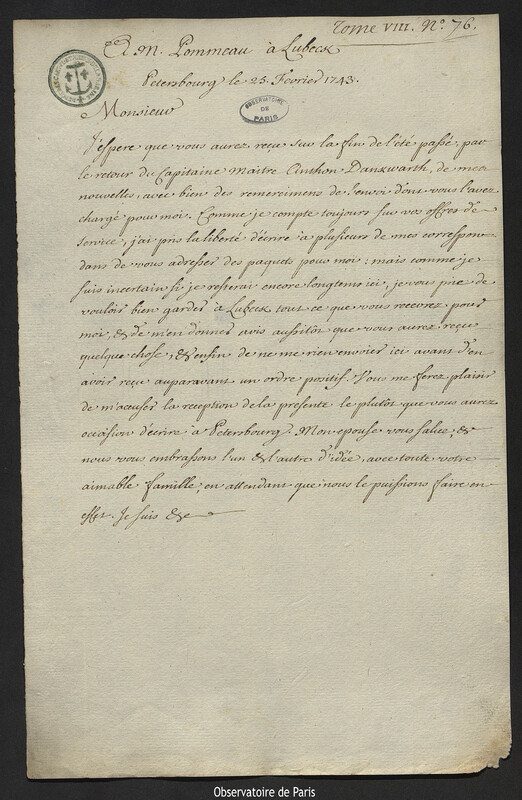 Tome VIII. N.o 76.
A M. Pommeau à Lubeck
Petersbourg le 25. Fevrier 1743.
OBSERVATOIRE
DE
PARIS
Monsieur
J'espere que vous aurez reçu sur la fin de l'été passé, par
le retour du Capitaine Maitre Anthon Danxwarth, de mes
nouvelles, avec bien des remercimens de l'envoi dont vous l'avez
chargé pour moi. Comme je compte toujours sur vos offres de
service, j'ai pris la liberté d'écrire à plusieurs de mes correspon
dans de vous adresser des paquets pour moi; mais comme je
suis incertain si je resterai encore longtems ici, je vous prie de
vouloir bien garder à Lubeck tout ce que vous recevrez pour
moi, & de m'en donner avis aussitôt que vous aurez reçu
quelque chose, & enfin de ne me rien envoier ici avant d'en
avoir reçu auparavant un ordre positif. Vous me ferez plaisir
de m'accuser la reception de la presente le plutot que vous aurez
occasion d'ecrire à Petersbourg. Mon epouse vous salue, &
nous vous embrassons l'un & l'autre d'idée, avec toute votre
aimable famille, en attendant que nous le puissions faire en
effet. Je suis &c
Observatoire de Paris